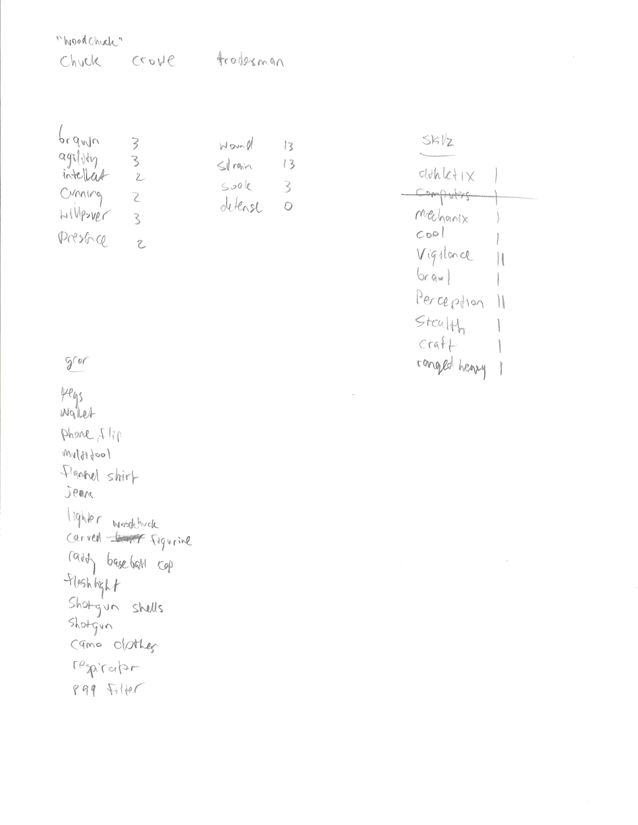 "WoodChuck"
Chuck Crowe tradesman
brawn 3
agility 3
intellect 2
Cunning 2
willpower 3
presence 2
wound 13
strain 13
soak 3
defense 0
Skillz
athletix |
Computers |
mechanix |
cool |
Vigilance ||
brawl |
Perception ||
Stealth |
craft |
ranged heavy |
gear
keys
wallet
phone, flip
multitool
flannel shirt
jeans
lighter
carved woodchuck figurine
ratty baseball cap
flashlight
Shotgun shells
Shotgun
camo clothes
respirator
P99 filter